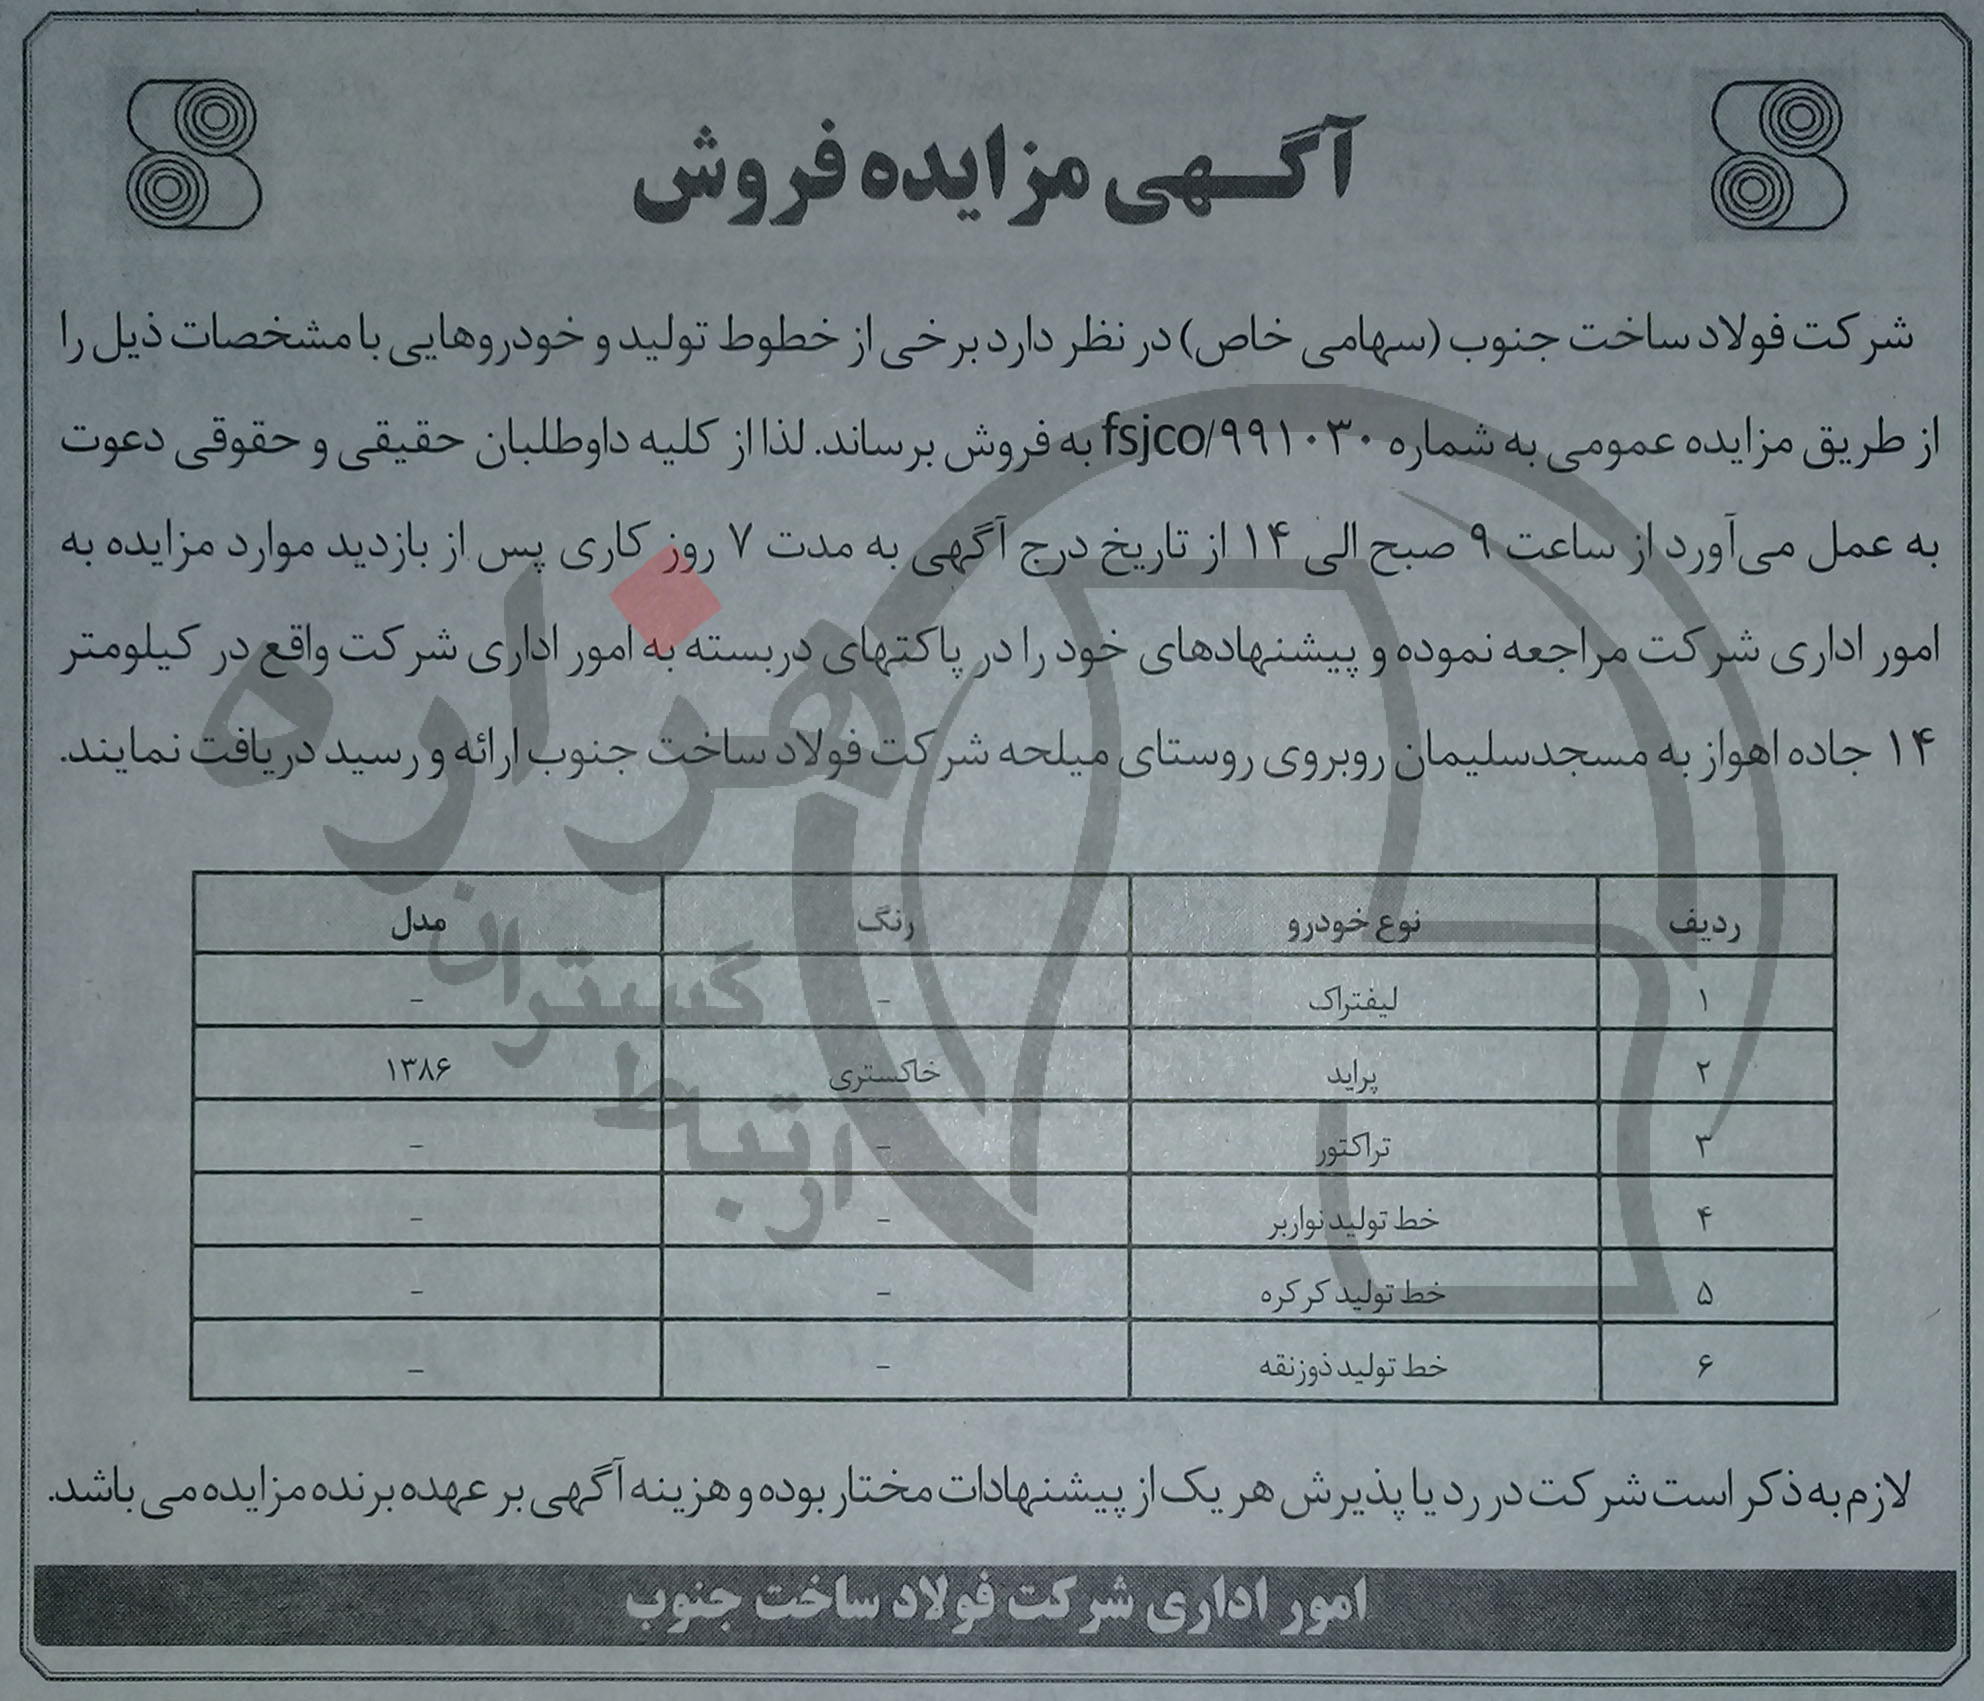 آگهی مزایده فروش
شرکت فولاد ساخت جنوب (سهامی خاص) در نظر دارد برخی از خطوط تولید و خودروهایی با مشخصات ذیل را
از طریق مزایده عمومی به شماره fsjco/۹۹۱۰۳۰ به فروش برساند. لذا از کلیه داوطلبان حقیقی و حقوقی دعوت
به عمل می‌آورد از ساعت ۹ صبح الی ۱۴ از تاریخ درج آگهی به مدت ۷ روز کاری پس از بازدید موارد مزایده به
امور اداری شرکت مراجعه نموده و پیشنهادهای خود را در پاکتهای دربسته به امور اداری شرکت واقع در کیلومتر
۱۴ جاده اهواز به مسجدسلیمان روبروی روستای میلحه شرکت فولاد ساخت جنوب ارائه و رسید دریافت نمایند.
ردیف نوع خودرو رنگ مدل
۱ لیفتراک - -
۲ پراید خاکستری ۱۳۸۶
۳ تراکتور - -
۴ خط تولید نواربر - -
۵ خط تولید کرکره - -
۶ خط تولید ذوزنقه - -
لازم به ذکر است شرکت در رد یا پذیرش هر یک از پیشنهادات مختار بوده و هزینه آگهی بر عهده برنده مزایده می باشد.
امور اداری شرکت فولاد ساخت جنوب
هزاره
گستران
ارتباط